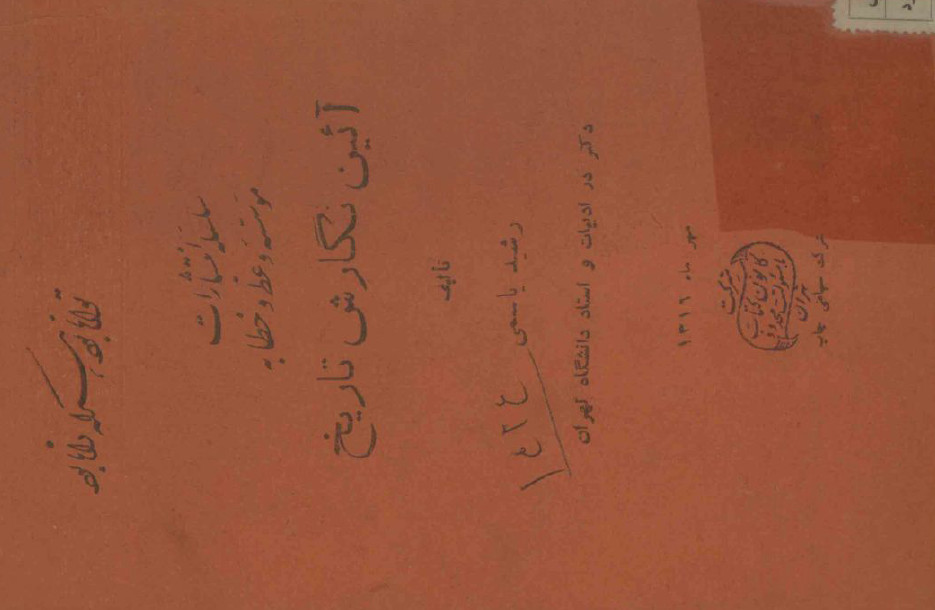 سلسله انتشارات
موسسه وعظ و خطابه
آئین نگارش تاریخ
تالیف
رشید یاسمی
دکتر در ادبیات و استاد دانشگاه تهران
مهر ماه ۱۳۱۶
شرکت
کانون کتاب
تهران
شرکت سهامی چاپ